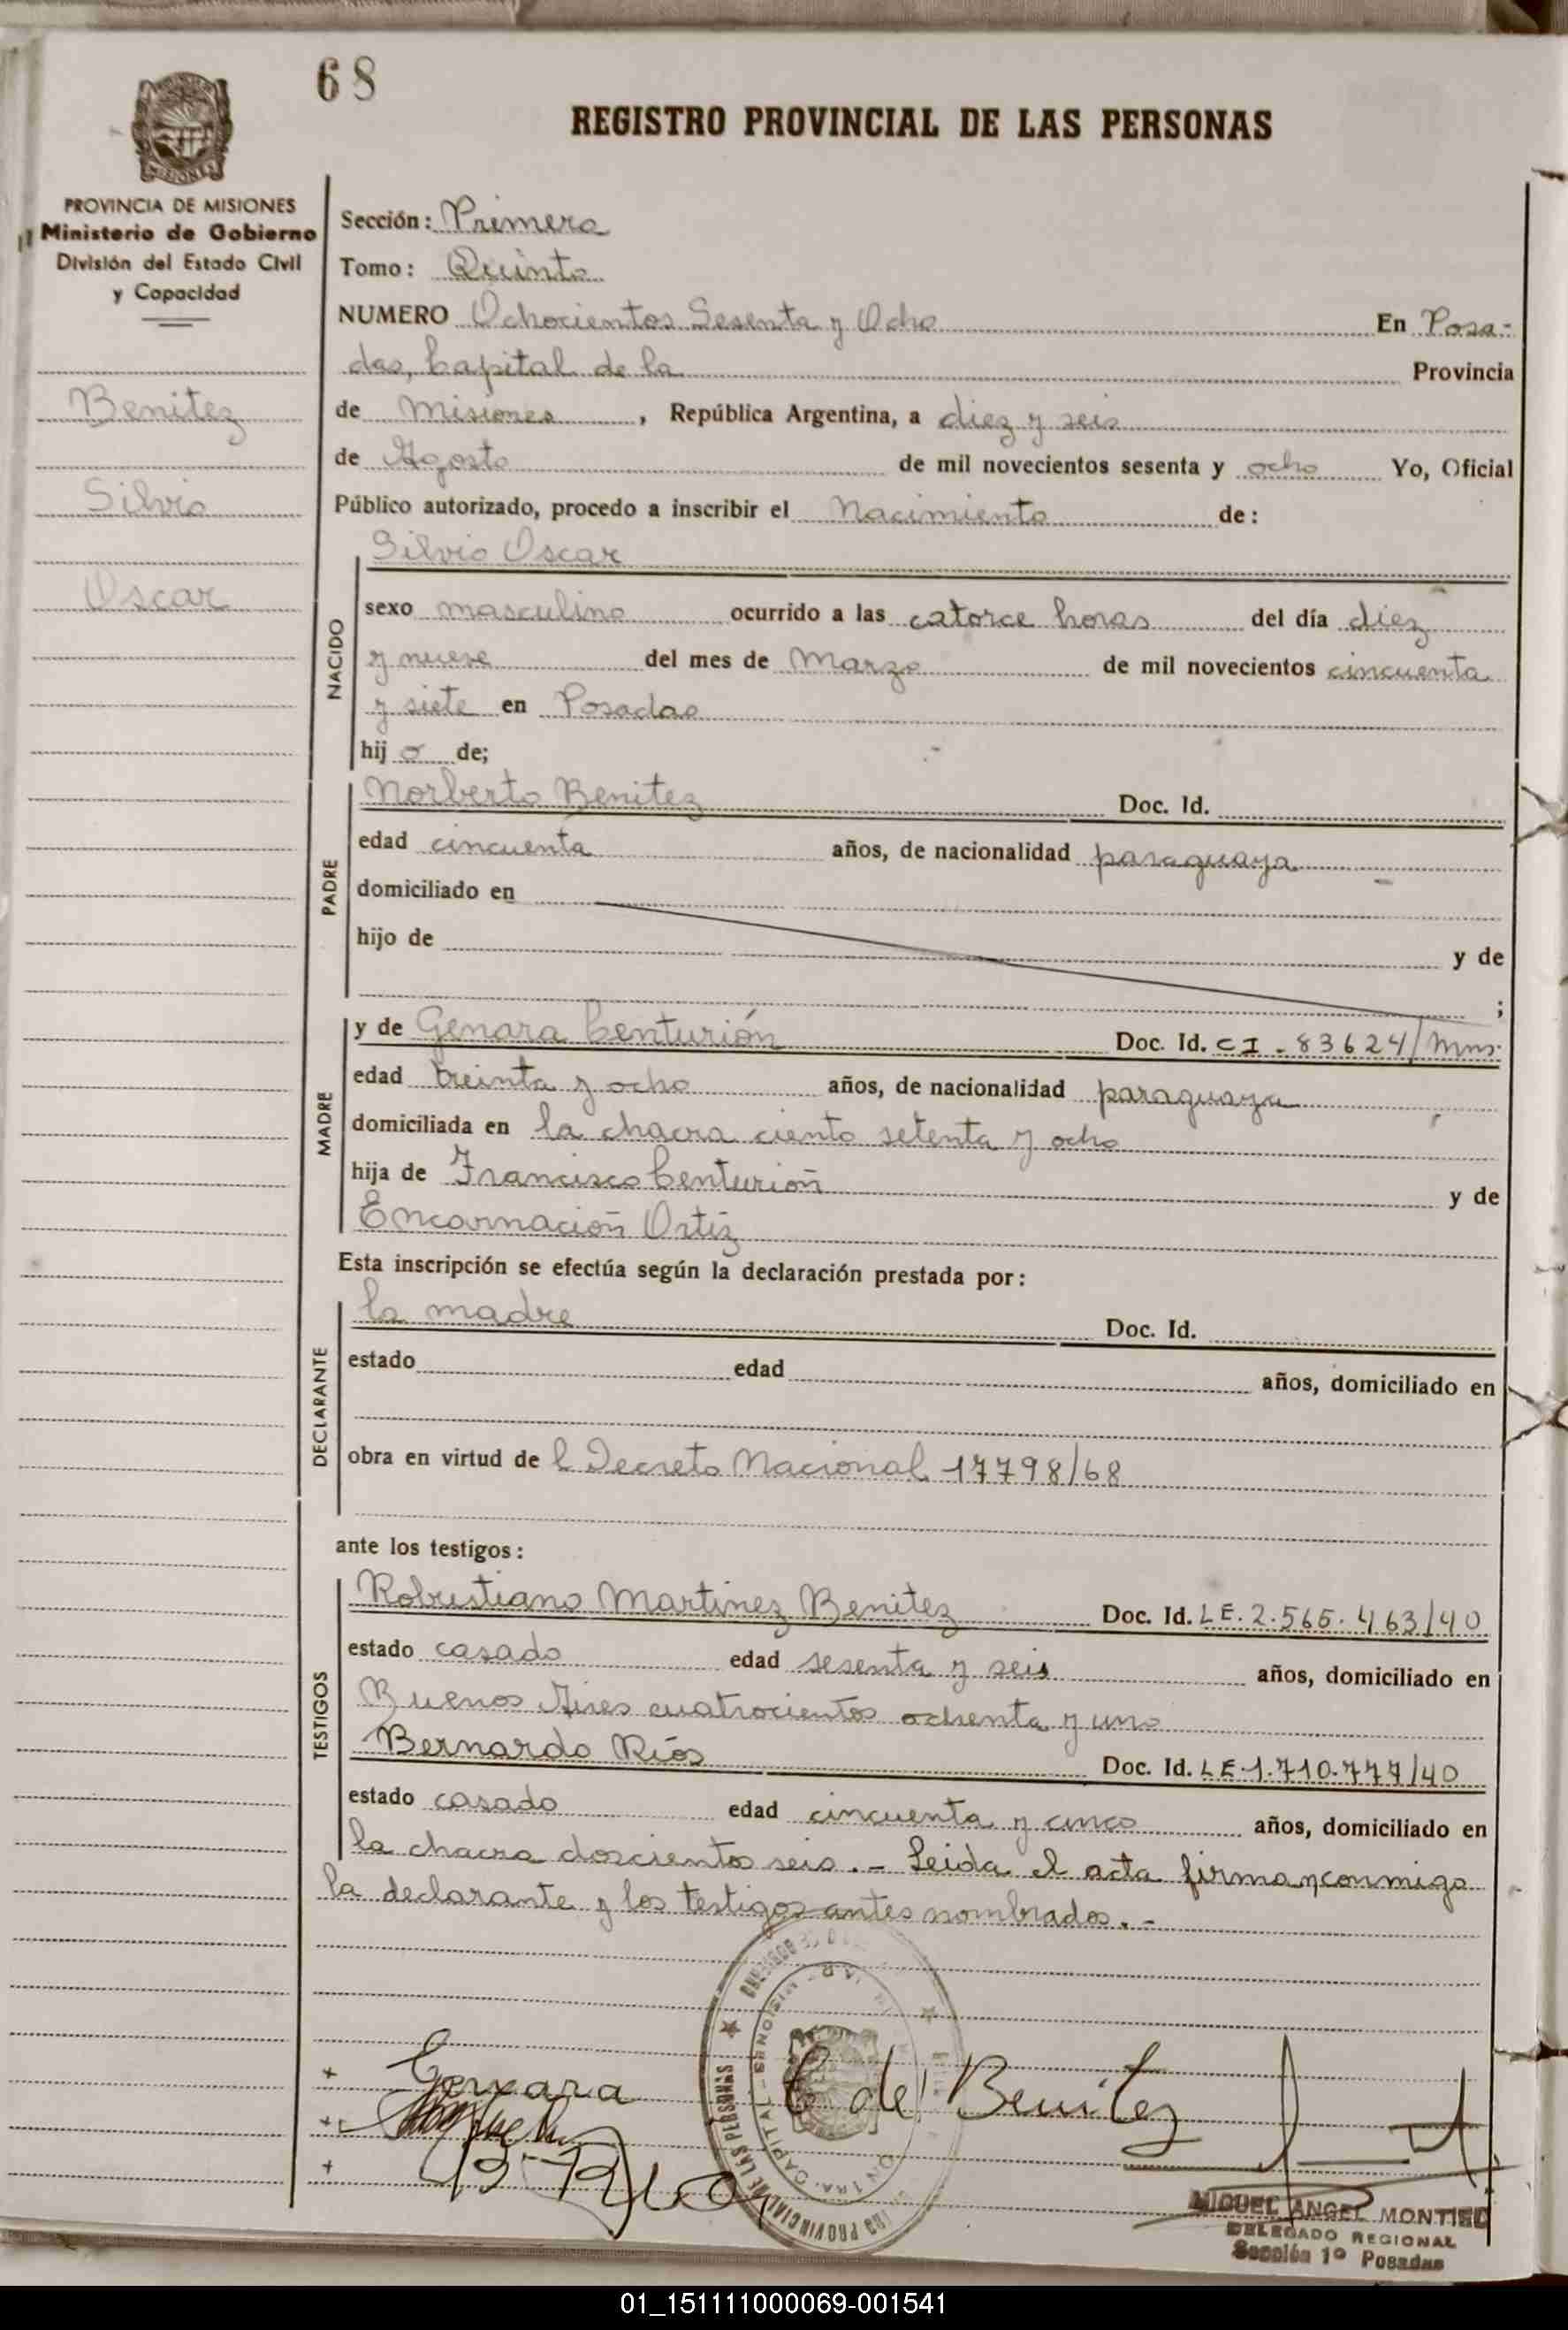 68
REGISTRO PROVINCIAL DE LAS PERSONAS
MISIONES
PROVINCIA DE MISIONES
Ministerio de Gobierno
División del Estado Civil
y Capacidad
Benitez
Silvio
Oscar
Sección: Primera
Tomo: Quinto
NUMERO Ochocientos Sesenta y Ocho En Posa-
das, Capital de la Provincia
de Misiones, República Argentina, a diez y seis
de Agosto de mil novecientos sesenta y ocho Yo, Oficial
Público autorizado, procedo a inscribir el Nacimiento de:
NACIDO
Silvio Oscar
sexo masculino ocurrido a las catorce horas del día diez
y nueve del mes de Marzo de mil novecientos cincuenta
y siete en Posadas
hijo de;
PADRE
Norberto Benitez Doc. Id.
edad cincuenta años, de nacionalidad paraguaya
domiciliado en
hijo de y de
;
MADRE
y de Genara Centurión Doc. Id. CI - 83624/Mns.
edad treinta y ocho años, de nacionalidad paraguaya
domiciliada en la chacra ciento setenta y ocho
hija de Francisco Centurión y de
Encarnación Ortiz
Esta inscripción se efectúa según la declaración prestada por:
DECLARANTE
la madre Doc. Id.
estado edad años, domiciliado en
obra en virtud de l Decreto Nacional 17798/68
ante los testigos:
TESTIGOS
Robustiano Martinez Benitez Doc. Id. LE. 2.565.463/40
estado casado edad sesenta y seis años, domiciliado en
Buenos Aires cuatrocientos ochenta y uno
Bernardo Ríos Doc. Id. LE-1.710.777/40
estado casado edad cincuenta y cinco años, domiciliado en
la chacra doscientos seis. - Leida el acta firman conmigo
la declarante y los testigos antes nombrados. -
Genara C de Benitez
B. Rios
MIGUEL ANGEL MONTIEL
DELEGADO REGIONAL
Sección 1º Posadas
01_151111000069-001541